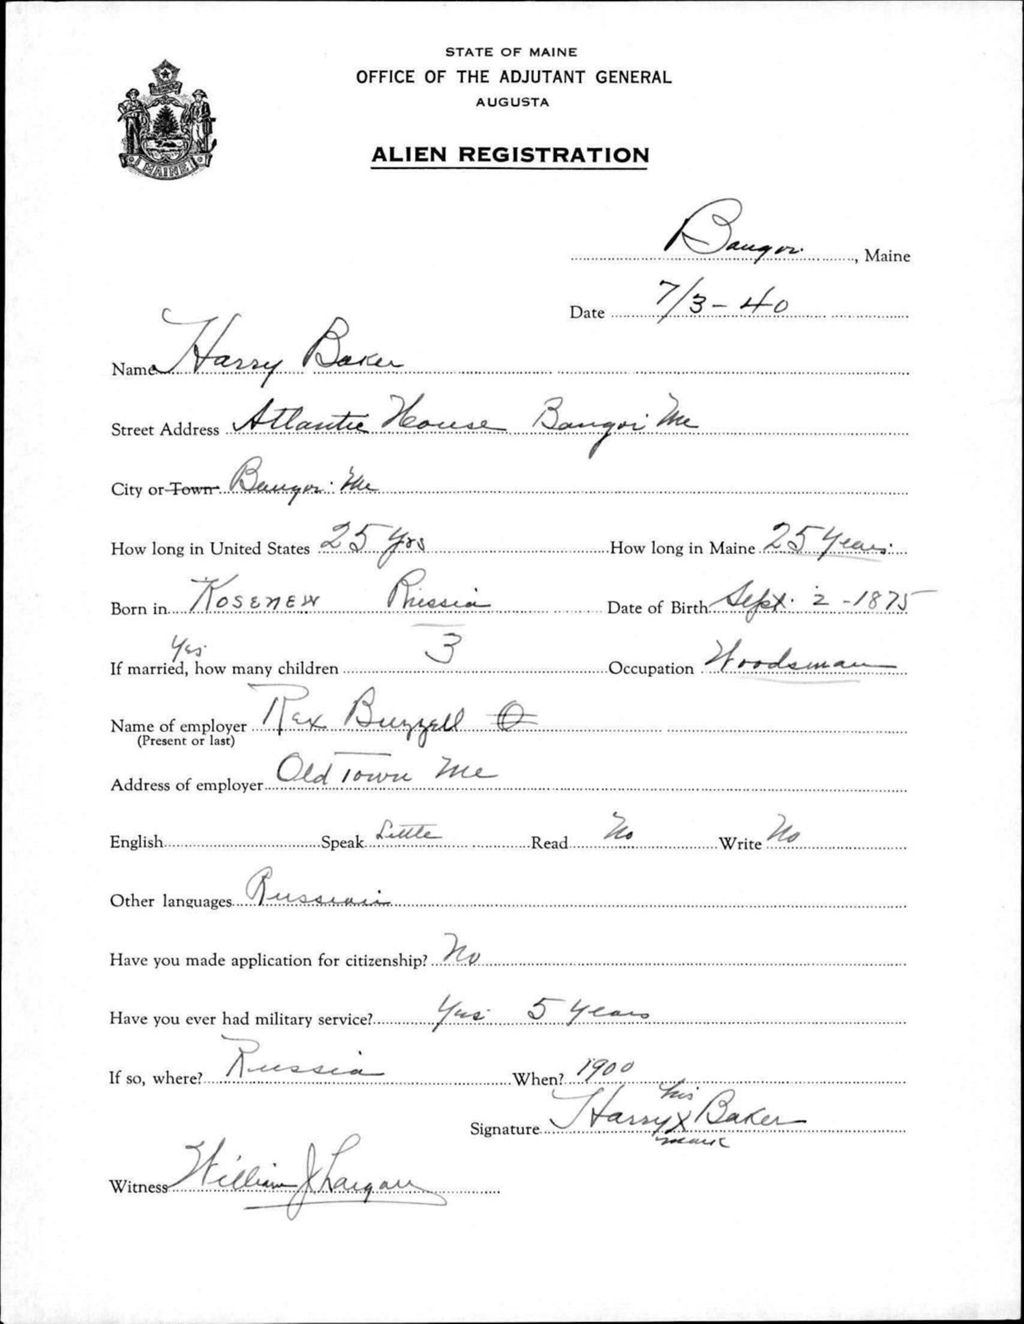 STATE OF MAINE
OFFICE OF THE ADJUTANT GENERAL
AUGUSTA
MAINE
ALIEN REGISTRATION
Bangor, Maine
Date 7/3-40
Name Harry Baker
Street Address Atlantic House Bangor Me
City or Town Bangor Me
How long in United States 25 yrs How long in Maine 25 years
Born in Kosenew Russia Date of Birth Sept. 2 - 1875
Yes
If married, how many children 3 Occupation Woodsman
Name of employer Rex Buzzell
(Present or last)
Address of employer Old Town Me
English Speak Little Read No Write No
Other languages Russian
Have you made application for citizenship? No
Have you ever had military service? Yes 5 years
If so, where? Russia When? 1900
his
Signature Harry X Baker
mark
Witness William J